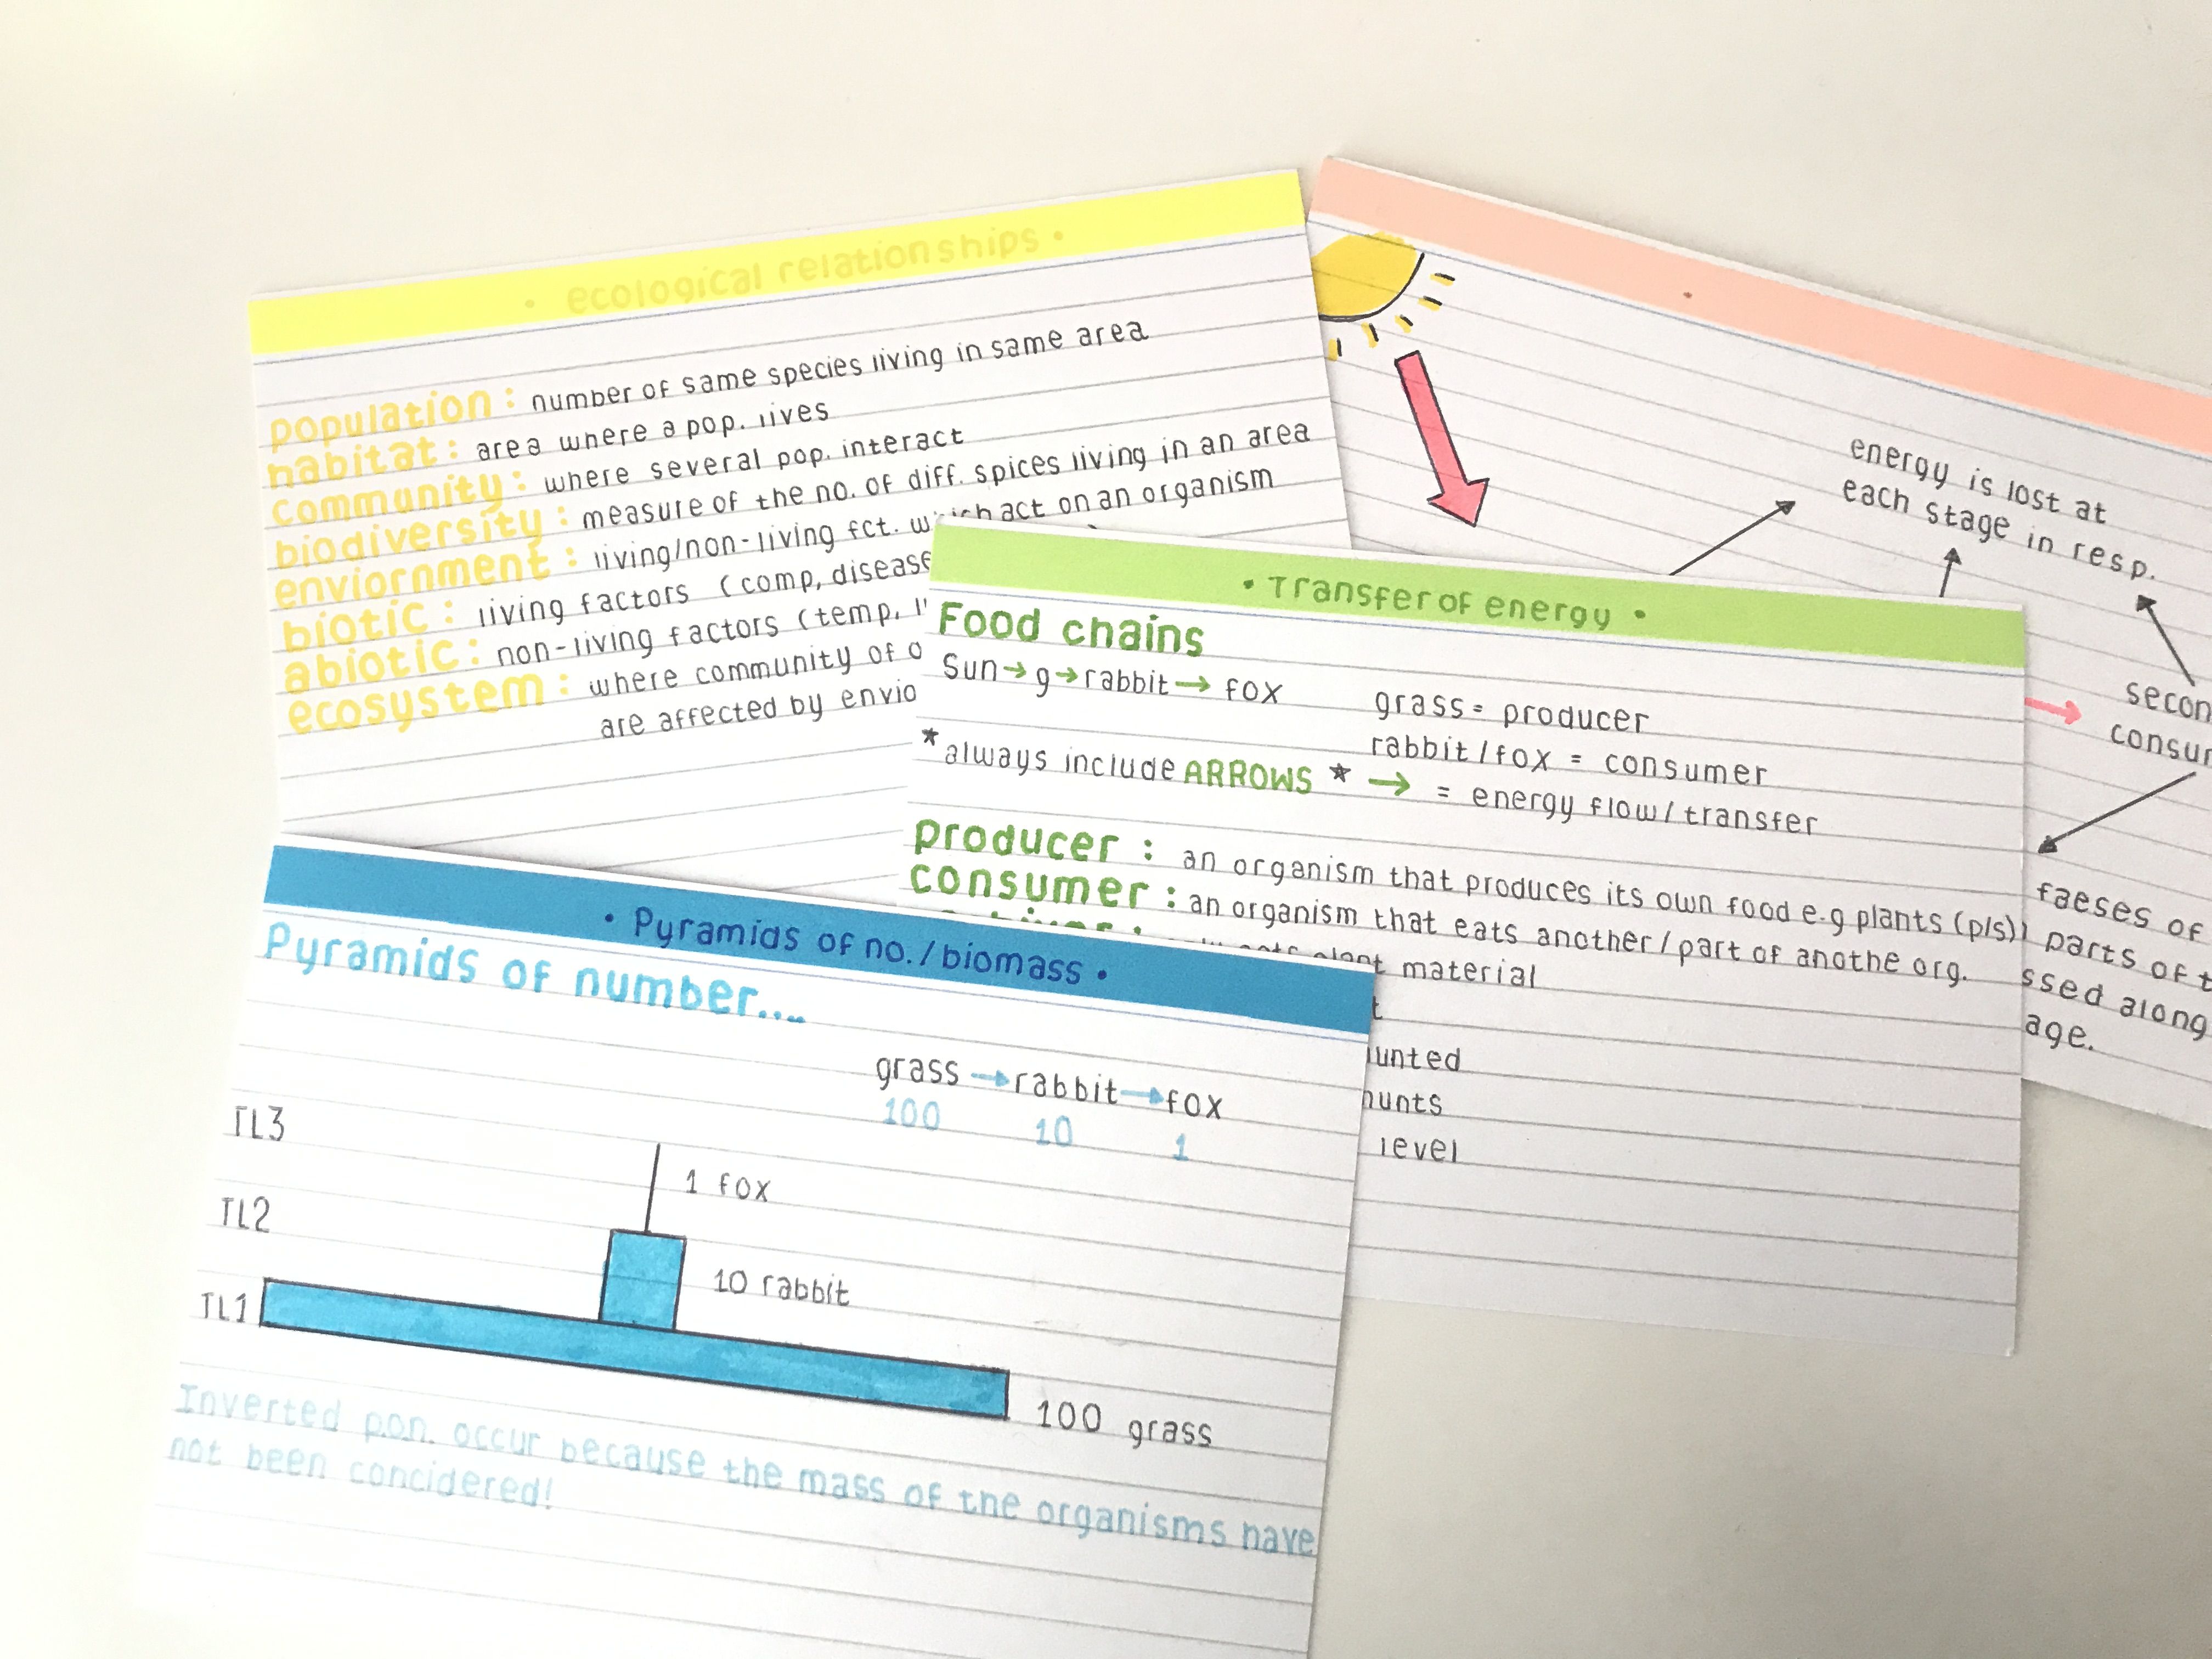 • ecological relationships •
population: number of same species living in same area
habitat: area where a pop. lives
community: where several pop. interact
biodiversity: measure of the no. of diff. spices living in an area
enviornment: living/non-living fct. which act on an organism
biotic: living factors (comp, disease
abiotic: non-living factors (temp,
ecosystem: where community of o
are affected by envio
energy is lost at
each stage in resp.
secon
consur
faeses of
parts of t
ssed along
age.
• Transfer of energy •
Food chains
Sun→g→rabbit→ fox
grass = producer
rabbit/fox = consumer
*always include ARROWS * → = energy flow/transfer
producer: an organism that produces its own food e.g plants (p/s)
consumer: an organism that eats another/part of anothe org.
plant material
unted
hunts
level
• Pyramids of no./biomass •
Pyramids of number....
grass → rabbit → fox
100 10 1
TL3
1 fox
TL2
10 rabbit
TL1
100 grass
Inverted p.o.n. occur because the mass of the organisms have
not been concidered!